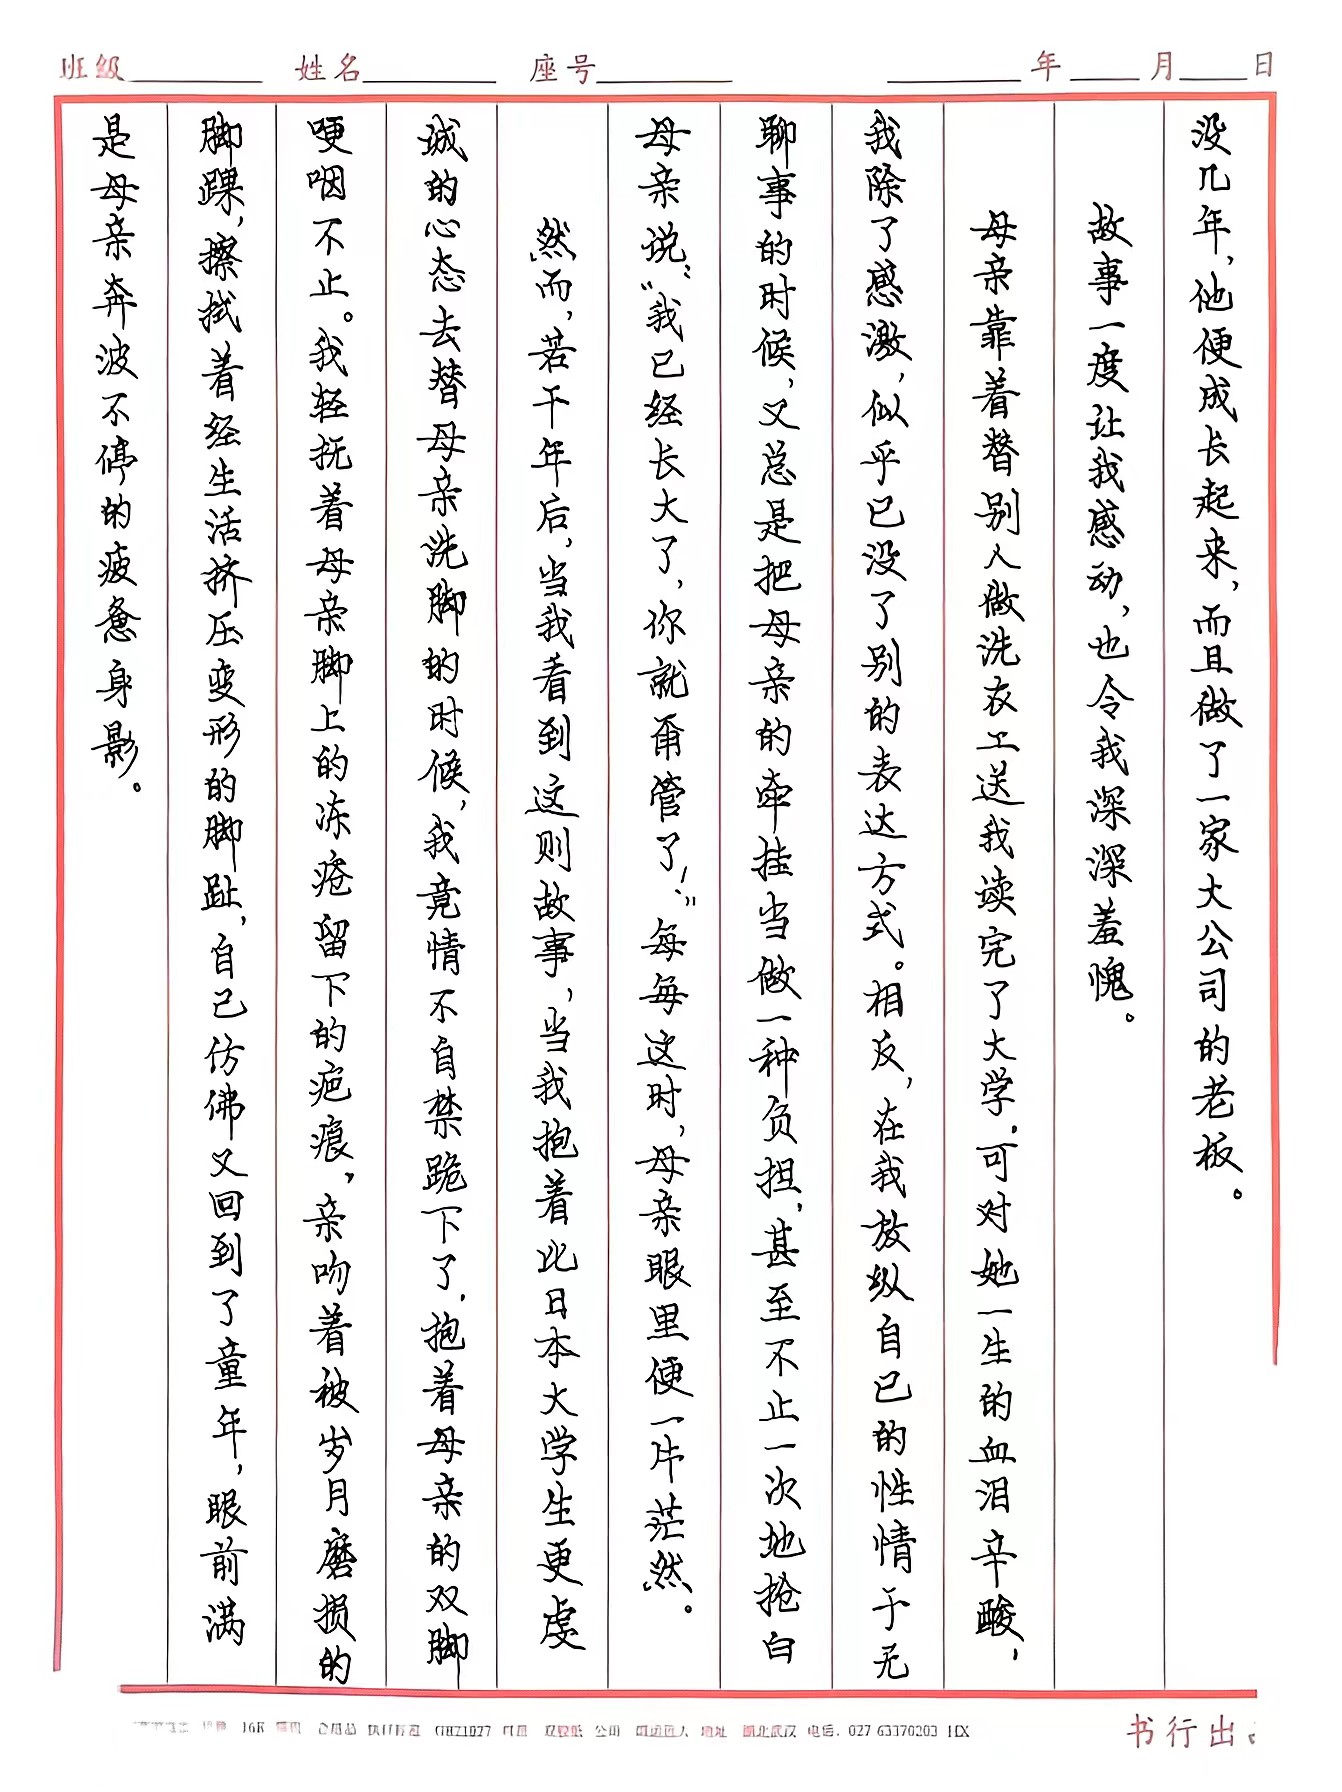 班级 姓名 座号 年 月 日
没几年，他便成长起来，而且做了一家大公司的老板。
故事一度让我感动，也令我深深羞愧。
母亲靠着替别人做洗衣工送我读完了大学．可对她一生的血泪辛酸，
我除了感激，似乎已没了别的表达方式。相反，在我放纵自己的性情于无
聊事的时候，又总是把母亲的牵挂当做一种负担，甚至不止一次地抢白
母亲说：“我已经长大了，你就甭管了！”每每这时，母亲眼里便一片茫然。
然而，若干年后，当我看到这则故事，当我抱着比日本大学生更虔
诚的心态去替母亲洗脚的时候，我竟情不自禁跪下了．抱着母亲的双脚
哽咽不止。我轻抚着母亲脚上的冻疮留下的疤痕，亲吻着被岁月磨损的
脚踝，擦拭着经生活挤压变形的脚趾，自己仿佛又回到了童年，眼前满
是母亲奔波不停的疲惫身影。
16K GHZ1027 双胶纸 公司 地址 湖北武汉 电话．027 63370203
书行出